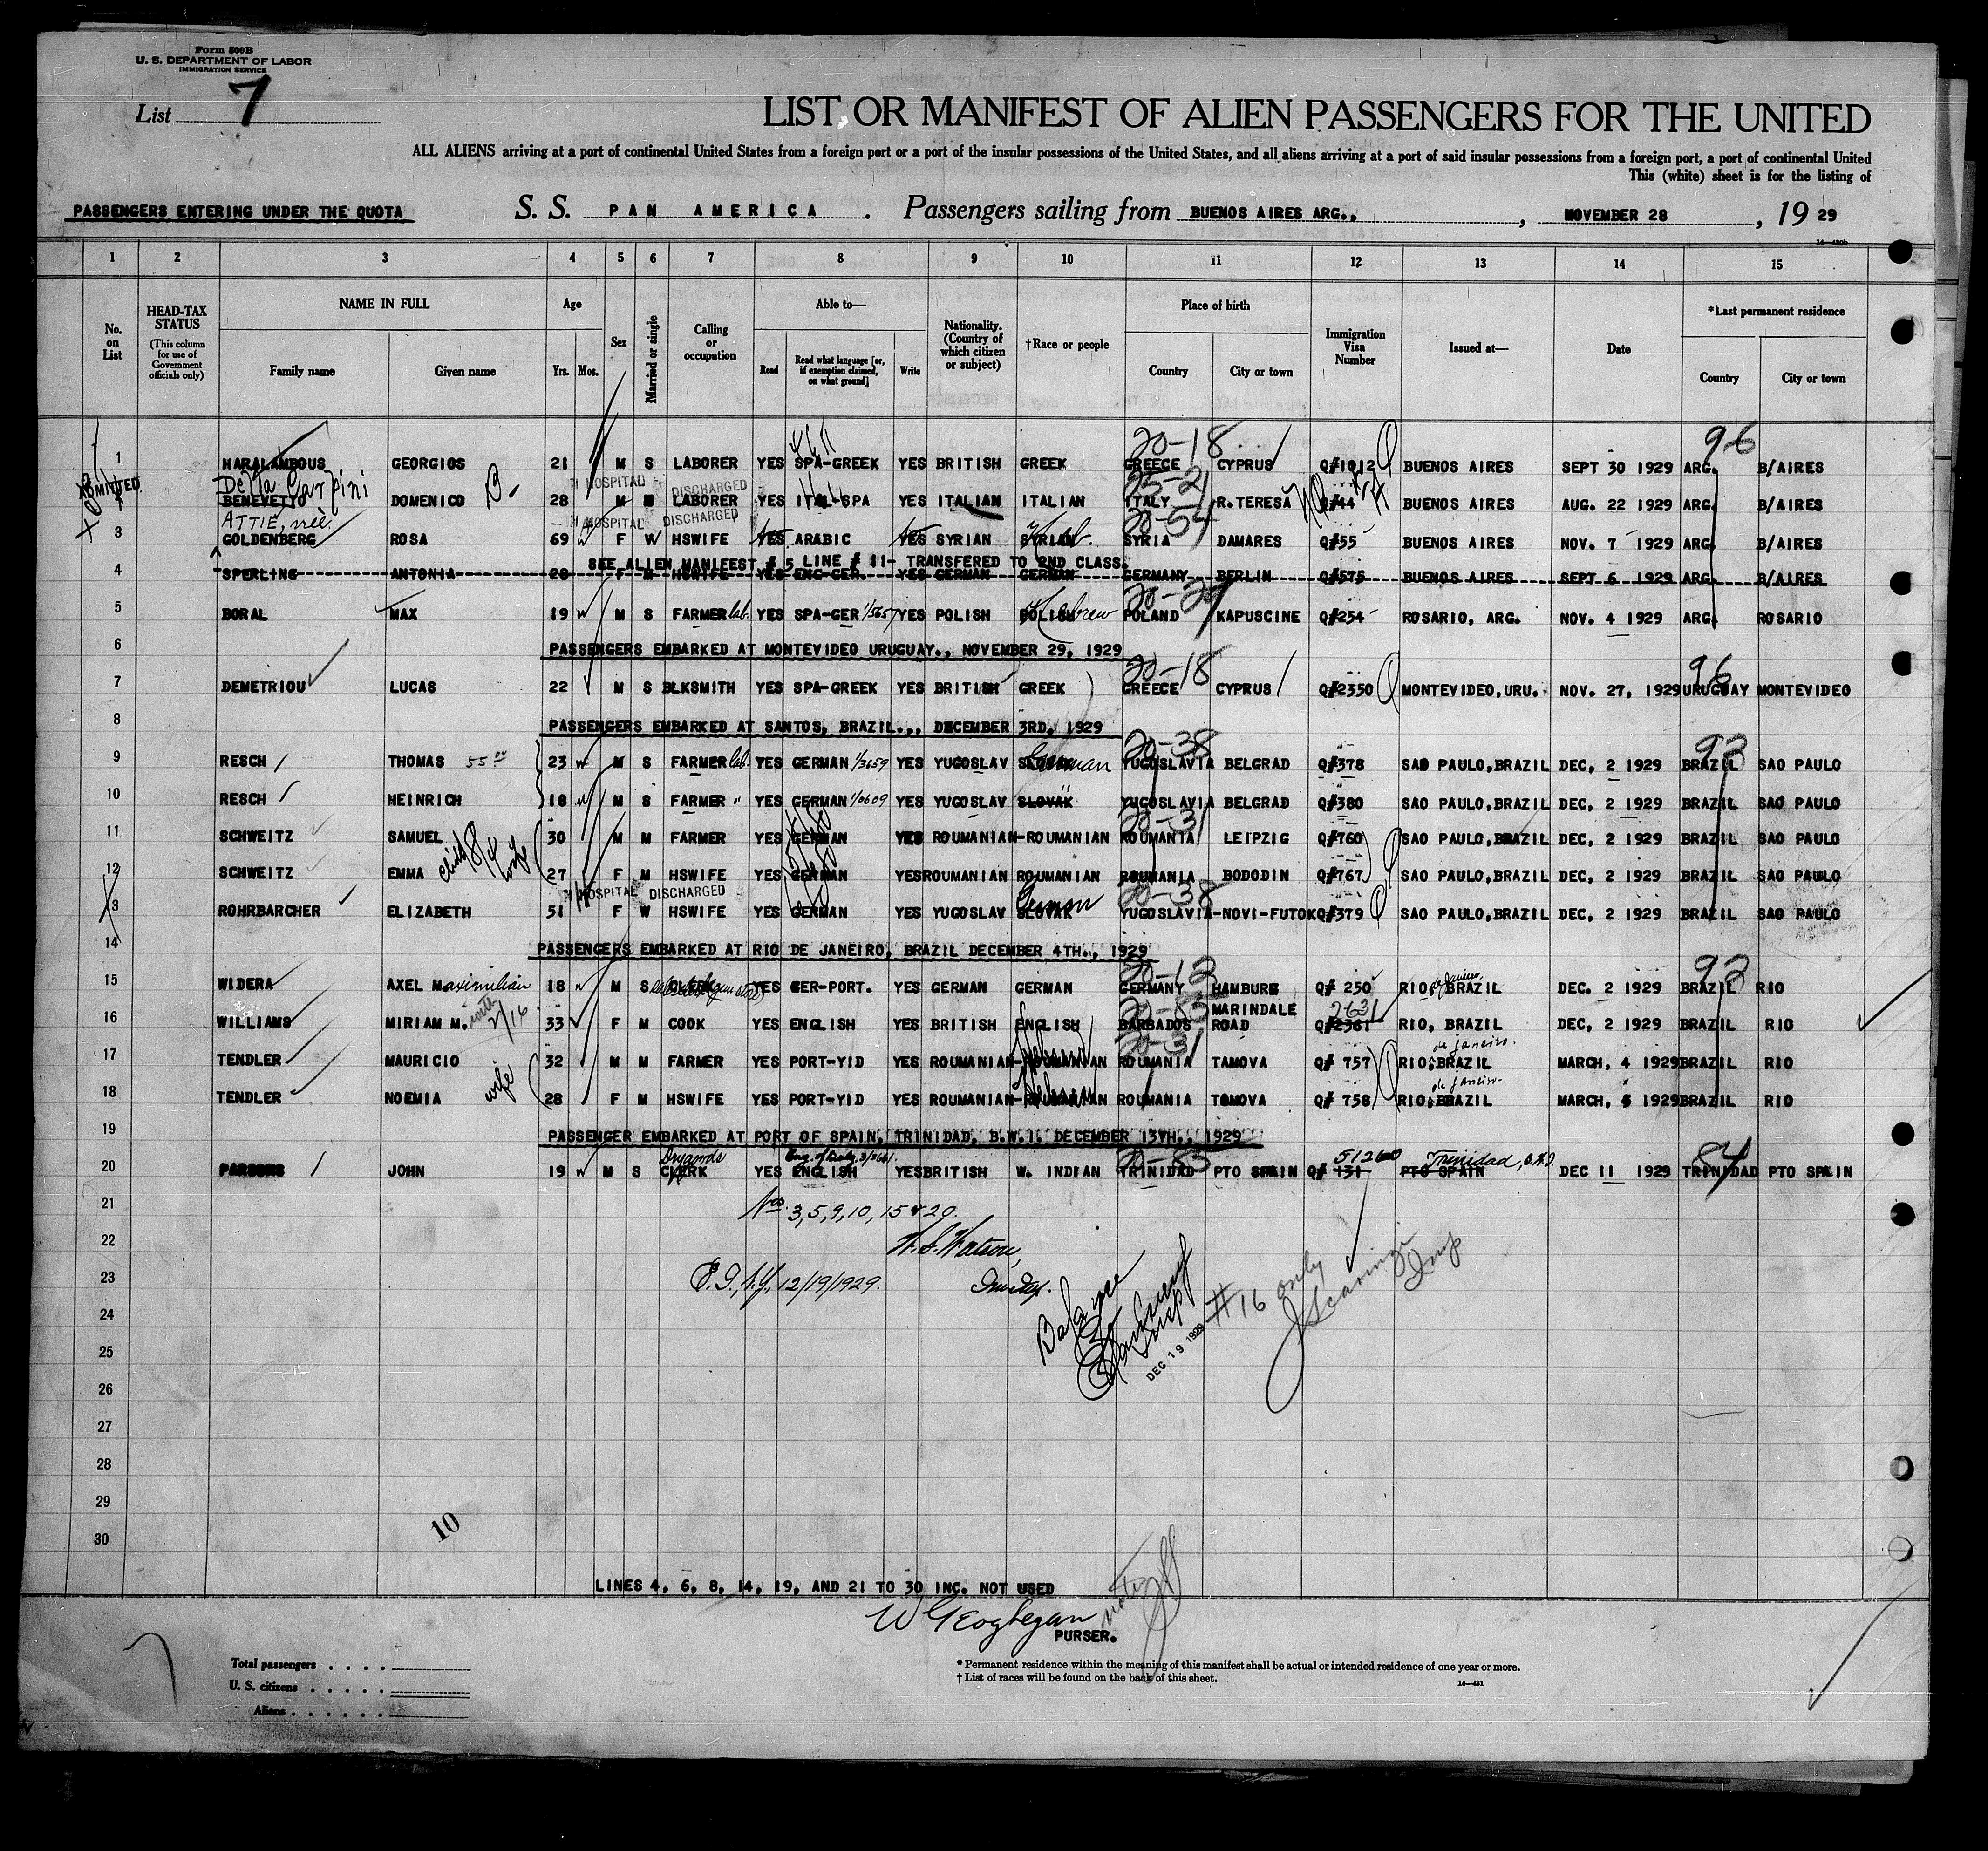 Form 500B
U. S. DEPARTMENT OF LABOR
IMMIGRATION SERVICE
List 7
LIST OR MANIFEST OF ALIEN PASSENGERS FOR THE UNITED
ALL ALIENS arriving at a port of continental United States from a foreign port or a port of the insular possessions of the United States, and all aliens arriving at a port of said insular possessions from a foreign port, a port of continental United
This (white) sheet is for the listing of
PASSENGERS ENTERING UNDER THE QUOTA S. S. PAN AMERICA . Passengers sailing from BUENOS AIRES ARG., , NOVEMBER 28 , 19 29
14-430b
1 2 3 4 5 6 7 8 9 10 11 12 13 14 15
No. on List HEAD-TAX STATUS (This column for use of Government officials only) NAME IN FULL Family name Given name Age Yrs. Mos. Sex Married or single Calling or occupation Able to— Read Read what language [or, if exemption claimed, on what ground] Write Nationality. (Country of which citizen or subject) †Race or people Place of birth Country City or town Immigration Visa Number Issued at— Date *Last permanent residence Country City or town
20-18 96
1 HARALAMBOUS GEORGIOS 21 M S LABORER YES SPA-GREEK YES BRITISH GREEK GREECE CYPRUS Q#1012 BUENOS AIRES SEPT 30 1929 ARG. B/AIRES
ADMITTED Della Carpini HOSPITAL DISCHARGED 25-21
2 BENEVETTO DOMENICO 28 M M LABORER YES ITAL-SPA YES ITALIAN ITALIAN ITALY R.TERESA Q#44 BUENOS AIRES AUG. 22 1929 ARG. B/AIRES
ATTIE, née HOSPITAL DISCHARGED 20-54
3 GOLDENBERG ROSA 69 F W HSWIFE YES ARABIC YES SYRIAN SYRIAN SYRIA DAMARES Q#55 BUENOS AIRES NOV. 7 1929 ARG. B/AIRES
SEE ALIEN MANIFEST # 5 LINE # 11- TRANSFERED TO 2ND CLASS.
4 SPERLING ANTONIA 28 F M HSWIFE YES ENG-GER. YES GERMAN GERMAN GERMANY BERLIN Q#575 BUENOS AIRES SEPT 6 1929 ARG. B/AIRES
5 BORAL MAX 19 M S FARMER lab. YES SPA-GER YES POLISH POLISH Hebrew POLAND KAPUSCINE Q#254 ROSARIO, ARG. NOV. 4 1929 ARG. ROSARIO
6 PASSENGERS EMBARKED AT MONTEVIDEO URUGUAY., NOVEMBER 29, 1929
20-18 96
7 DEMETRIOU LUCAS 22 M S BLKSMITH YES SPA-GREEK YES BRITISH GREEK GREECE CYPRUS Q#2350 MONTEVIDEO,URU. NOV. 27, 1929 URUGUAY MONTEVIDEO
8 PASSENGERS EMBARKED AT SANTOS, BRAZIL.,, DECEMBER 3RD, 1929
20-38 92
9 RESCH THOMAS 23 M S FARMER lab. YES GERMAN 1/3659 YES YUGOSLAV SLOVAK German YUGOSLAVIA BELGRAD Q#378 SAO PAULO,BRAZIL DEC, 2 1929 BRAZIL SAO PAULO
10 RESCH HEINRICH 18 M S FARMER " YES GERMAN 1/0609 YES YUGOSLAV SLOVAK YUGOSLAVIA BELGRAD Q#380 SAO PAULO,BRAZIL DEC, 2 1929 BRAZIL SAO PAULO
20-31
11 SCHWEITZ SAMUEL 30 M M FARMER YES GERMAN YES ROUMANIAN-ROUMANIAN ROUMANIA LEIPZIG Q#760 SAO PAULO,BRAZIL DEC, 2 1929 BRAZIL SAO PAULO
12 SCHWEITZ EMMA wife 27 F M HSWIFE YES GERMAN YES ROUMANIAN ROUMANIAN ROUMANIA BODODIN Q#767 SAO PAULO,BRAZIL DEC, 2 1929 BRAZIL SAO PAULO
HOSPITAL DISCHARGED German 20-38
13 ROHRBARCHER ELIZABETH 51 F W HSWIFE YES GERMAN YES YUGOSLAV SLOVAK YUGOSLAVIA-NOVI-FUTOK Q#379 SAO PAULO,BRAZIL DEC, 2 1929 BRAZIL SAO PAULO
14 PASSENGERS EMBARKED AT RIO DE JANEIRO, BRAZIL DECEMBER 4TH., 1929
20-12 92
15 WIDERA AXEL Maximilian 18 M S CLERK YES GER-PORT. YES GERMAN GERMAN GERMANY HAMBURG Q# 250 RIO, BRAZIL DEC. 2 1929 BRAZIL RIO
20-83 MARINDALE 2631
16 WILLIAMS MIRIAM M. 33 F M COOK YES ENGLISH YES BRITISH ENGLISH BARBADOS ROAD Q#2361 RIO, BRAZIL DEC, 2 1929 BRAZIL RIO
20-31 de Janeiro.
17 TENDLER MAURICIO 32 M M FARMER YES PORT-YID YES ROUMANIAN-ROUMANIAN Hebrew ROUMANIA TAMOVA Q# 757 RIO, BRAZIL MARCH, 4 1929 BRAZIL RIO
de Janeiro.
18 TENDLER NOEMIA wife 28 F M HSWIFE YES PORT-YID YES ROUMANIAN-ROUMANIAN Hebrew ROUMANIA TOMOVA Q# 758 RIO, BRAZIL MARCH, 5 1929 BRAZIL RIO
19 PASSENGER EMBARKED AT PORT OF SPAIN, TRINIDAD, B.W.I. DECEMBER 13TH., 1929
Drygoods 20-83 51260 Trinidad, B.W.I. 84
20 PARSONS JOHN 19 M S CLERK YES ENGLISH YES BRITISH W. INDIAN TRINIDAD PTO SPAIN Q# 131 PTO SPAIN DEC 11 1929 TRINIDAD PTO SPAIN
21 Nos. 3,5,9,10,15 & 20.
22 W.J. Watson,
23 E.I., N.Y. 12/19/1929. Inspector.
Balance
#16 only
J Scaringi Insp
24 DEC 19 1929
25
26
27
28
29
30
10
LINES 4, 6, 8, 14, 19, AND 21 TO 30 INC. NOT USED
W Geoghegan
PURSER.
Total passengers . . . .
U. S. citizens . . . . .
Aliens . . . . . .
* Permanent residence within the meaning of this manifest shall be actual or intended residence of one year or more.
† List of races will be found on the back of this sheet.
14-431